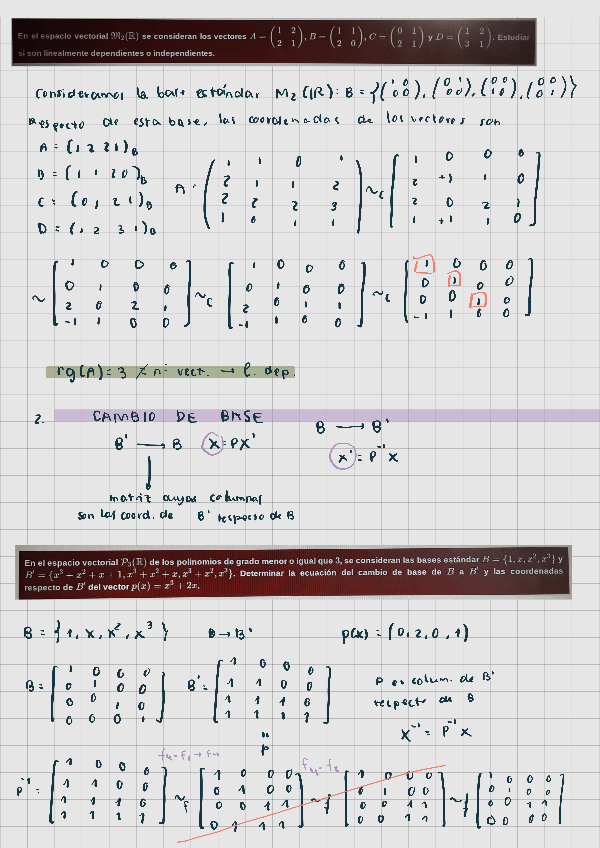 En el espacio vectorial 𝔐₂(ℝ) se consideran los vectores A = (1 2; 2 1), B = (1 1; 2 0), C = (0 1; 2 1) y D = (1 2; 3 1). Estudiar
si son linealmente dependientes o independientes.
Consideramos la base estándar M₂(ℝ): B = {(1 0; 0 0), (0 1; 0 0), (0 0; 1 0), (0 0; 0 1)}
Respecto de esta base, las coordenadas de los vectores son
A = (1 2 2 1)B
B = (1 1 2 0)B
C = (0 1 2 1)B
D = (1 2 3 1)B
A = (1 1 0 1; 2 1 1 2; 2 2 2 3; 1 0 1 1) ~c [1 0 0 0; 2 +1 1 0; 2 0 2 1; 1 +1 1 0]
~ [1 0 0 0; 0 1 0 0; 2 0 2 1; -1 1 0 0] ~c [1 0 0 0; 0 1 0 0; 2 0 1 1; -1 1 0 0] ~c [1 0 0 0; 0 1 0 0; 0 0 1 0; -1 1 0 0]
rg(A) = 3 ≠ nº vect. → l. dep.
2. CAMBIO DE BASE
B' → B X = PX'
B → B'
X' = P⁻¹X
matriz cuyas columnas
son las coord. de B' respecto de B
En el espacio vectorial 𝒫₃(ℝ) de los polinomios de grado menor o igual que 3, se consideran las bases estándar B = {1, x, x², x³} y
B' = {x³ + x² + x + 1, x³ + x² + x, x³ + x², x³}. Determinar la ecuación del cambio de base de B a B' y las coordenadas
respecto de B' del vector p(x) = x³ + 2x.
B = {1, x, x², x³} B → B' p(x) = (0, 2, 0, 1)
B = [1 0 0 0; 0 1 0 0; 0 0 1 0; 0 0 0 1] B' = [1 0 0 0; 1 1 0 0; 1 1 1 0; 1 1 1 1]
P es colum. de B'
respecto de B
X⁻¹ = P⁻¹X
"
P
F4-F1→F4
F4-F2
P⁻¹ = [1 0 0 0; 1 1 0 0; 1 1 1 0; 1 1 1 1] ~f [1 0 0 0; 0 1 0 0; 0 0 1 1; 0 1 1 1] ~f [1 0 0 0; 0 1 0 0; 0 0 1 1; 0 0 1 1] ~f [1 0 0 0; 0 1 0 0; 0 0 1 1; 0 0 0 0]